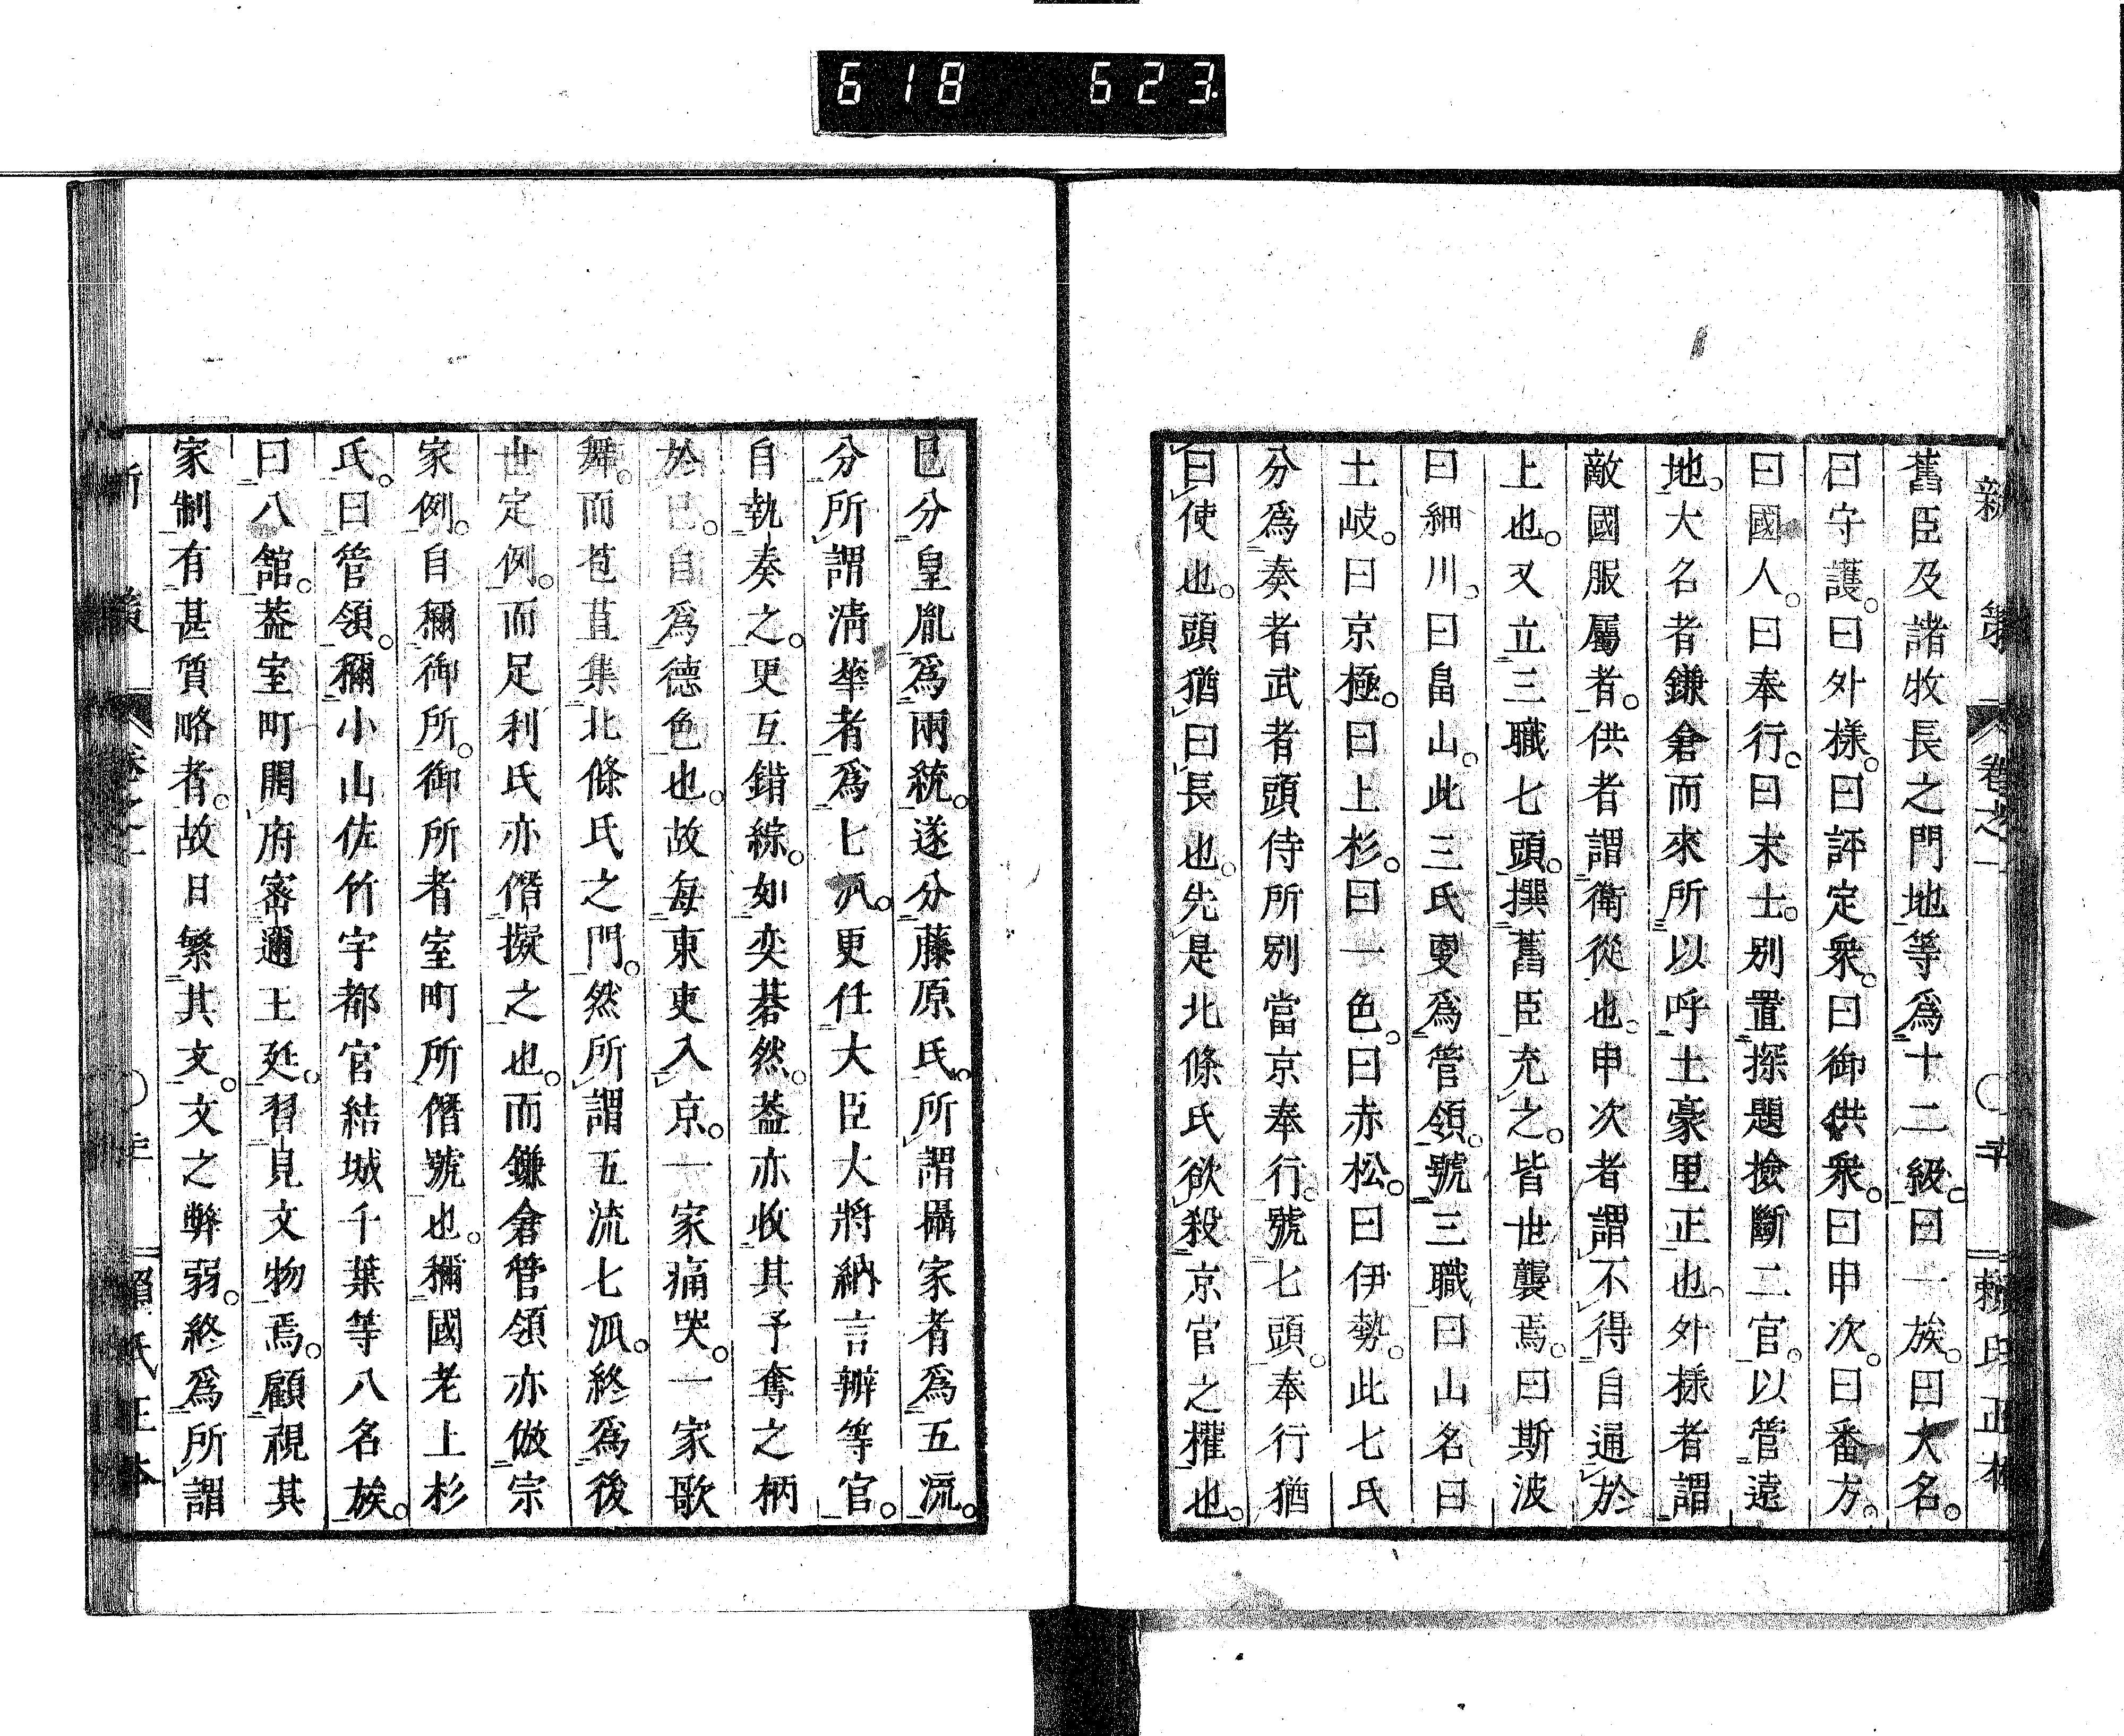 618 623
新策 卷之一 賴氏正本
舊臣及諸牧長之門地等爲十二級。曰一族。曰大名。
曰守護。曰外樣。曰評定衆。曰御供衆。曰申次。曰番方。
曰國人。曰奉行。曰末士。別置探題撿斷二官。以管遠
地。大名者鎌倉而來所以呼土豪里正也。外樣者謂
敵國服屬者。供者謂衛從也。申次者謂不得自通於
上也。又立三職七頭。撰舊臣充之。皆世襲焉。曰斯波
曰細川。曰畠山。此三氏更爲管領。號三職。曰山名曰
土岐。曰京極。曰上杉。曰一色。曰赤松。曰伊勢。此七氏
分爲奏者武者頭侍所別當京奉行。號七頭。奉行猶
曰使也。頭猶曰長也。先是北條氏欲殺京官之權也。
已分皇胤爲兩統。遂分藤原氏。所謂攝家者爲五流。
分所謂淸華者爲七派。更任大臣大將納言辨等官。
自執奏之。更互錯綜。如奕碁然。蓋亦收其予奪之柄
於已。自爲德色也。故每東吏入京。一家痛哭。一家歌
舞。而苞苴集北條氏之門。然所謂五流七派。終爲後
世定例。而足利氏亦僭擬之也。而鎌倉管領亦倣宗
家例。自稱御所。御所者室町所僭號也。稱國老上杉
氏。曰管領。稱小山佐竹宇都宮結城千葉等八名族。
曰八舘。蓋室町開府密邇王廷。習見文物焉。顧視其
家制有甚質略者。故日繁其文。文之弊弱。終爲所謂